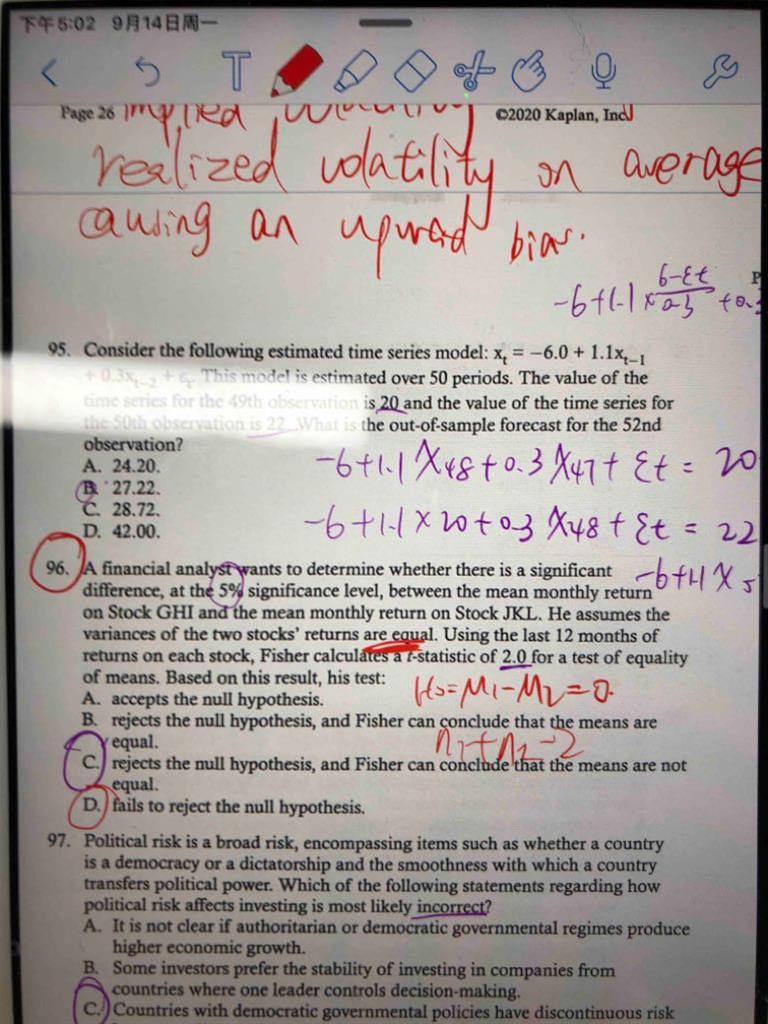 下午5:02 9月14日周一
T
Page 26 implied ©2020 Kaplan, Inc
realized volatility on average
causing an upward bias.
6-εt
-6+1.1× 0.3 +0.3
95. Consider the following estimated time series model: xₜ = −6.0 + 1.1xₜ₋₁
+ 0.3xₜ₋₂ + εₜ. This model is estimated over 50 periods. The value of the
time series for the 49th observation is 20 and the value of the time series for
the 50th observation is 22. What is the out-of-sample forecast for the 52nd
observation?
A. 24.20.
-6+1.1 X48+0.3 X47+ Et = 20
B. 27.22.
C. 28.72.
-6+1.1×20+0.3 X48+Et = 22
D. 42.00.
96. A financial analyst wants to determine whether there is a significant
-6+1.1 X 5
difference, at the 5% significance level, between the mean monthly return
on Stock GHI and the mean monthly return on Stock JKL. He assumes the
variances of the two stocks' returns are equal. Using the last 12 months of
returns on each stock, Fisher calculates a t-statistic of 2.0 for a test of equality
of means. Based on this result, his test:
H0=M1-M2=0.
A. accepts the null hypothesis.
B. rejects the null hypothesis, and Fisher can conclude that the means are
equal.
n1+n2-2
C. rejects the null hypothesis, and Fisher can conclude that the means are not
equal.
D. fails to reject the null hypothesis.
97. Political risk is a broad risk, encompassing items such as whether a country
is a democracy or a dictatorship and the smoothness with which a country
transfers political power. Which of the following statements regarding how
political risk affects investing is most likely incorrect?
A. It is not clear if authoritarian or democratic governmental regimes produce
higher economic growth.
B. Some investors prefer the stability of investing in companies from
countries where one leader controls decision-making.
C. Countries with democratic governmental policies have discontinuous risk